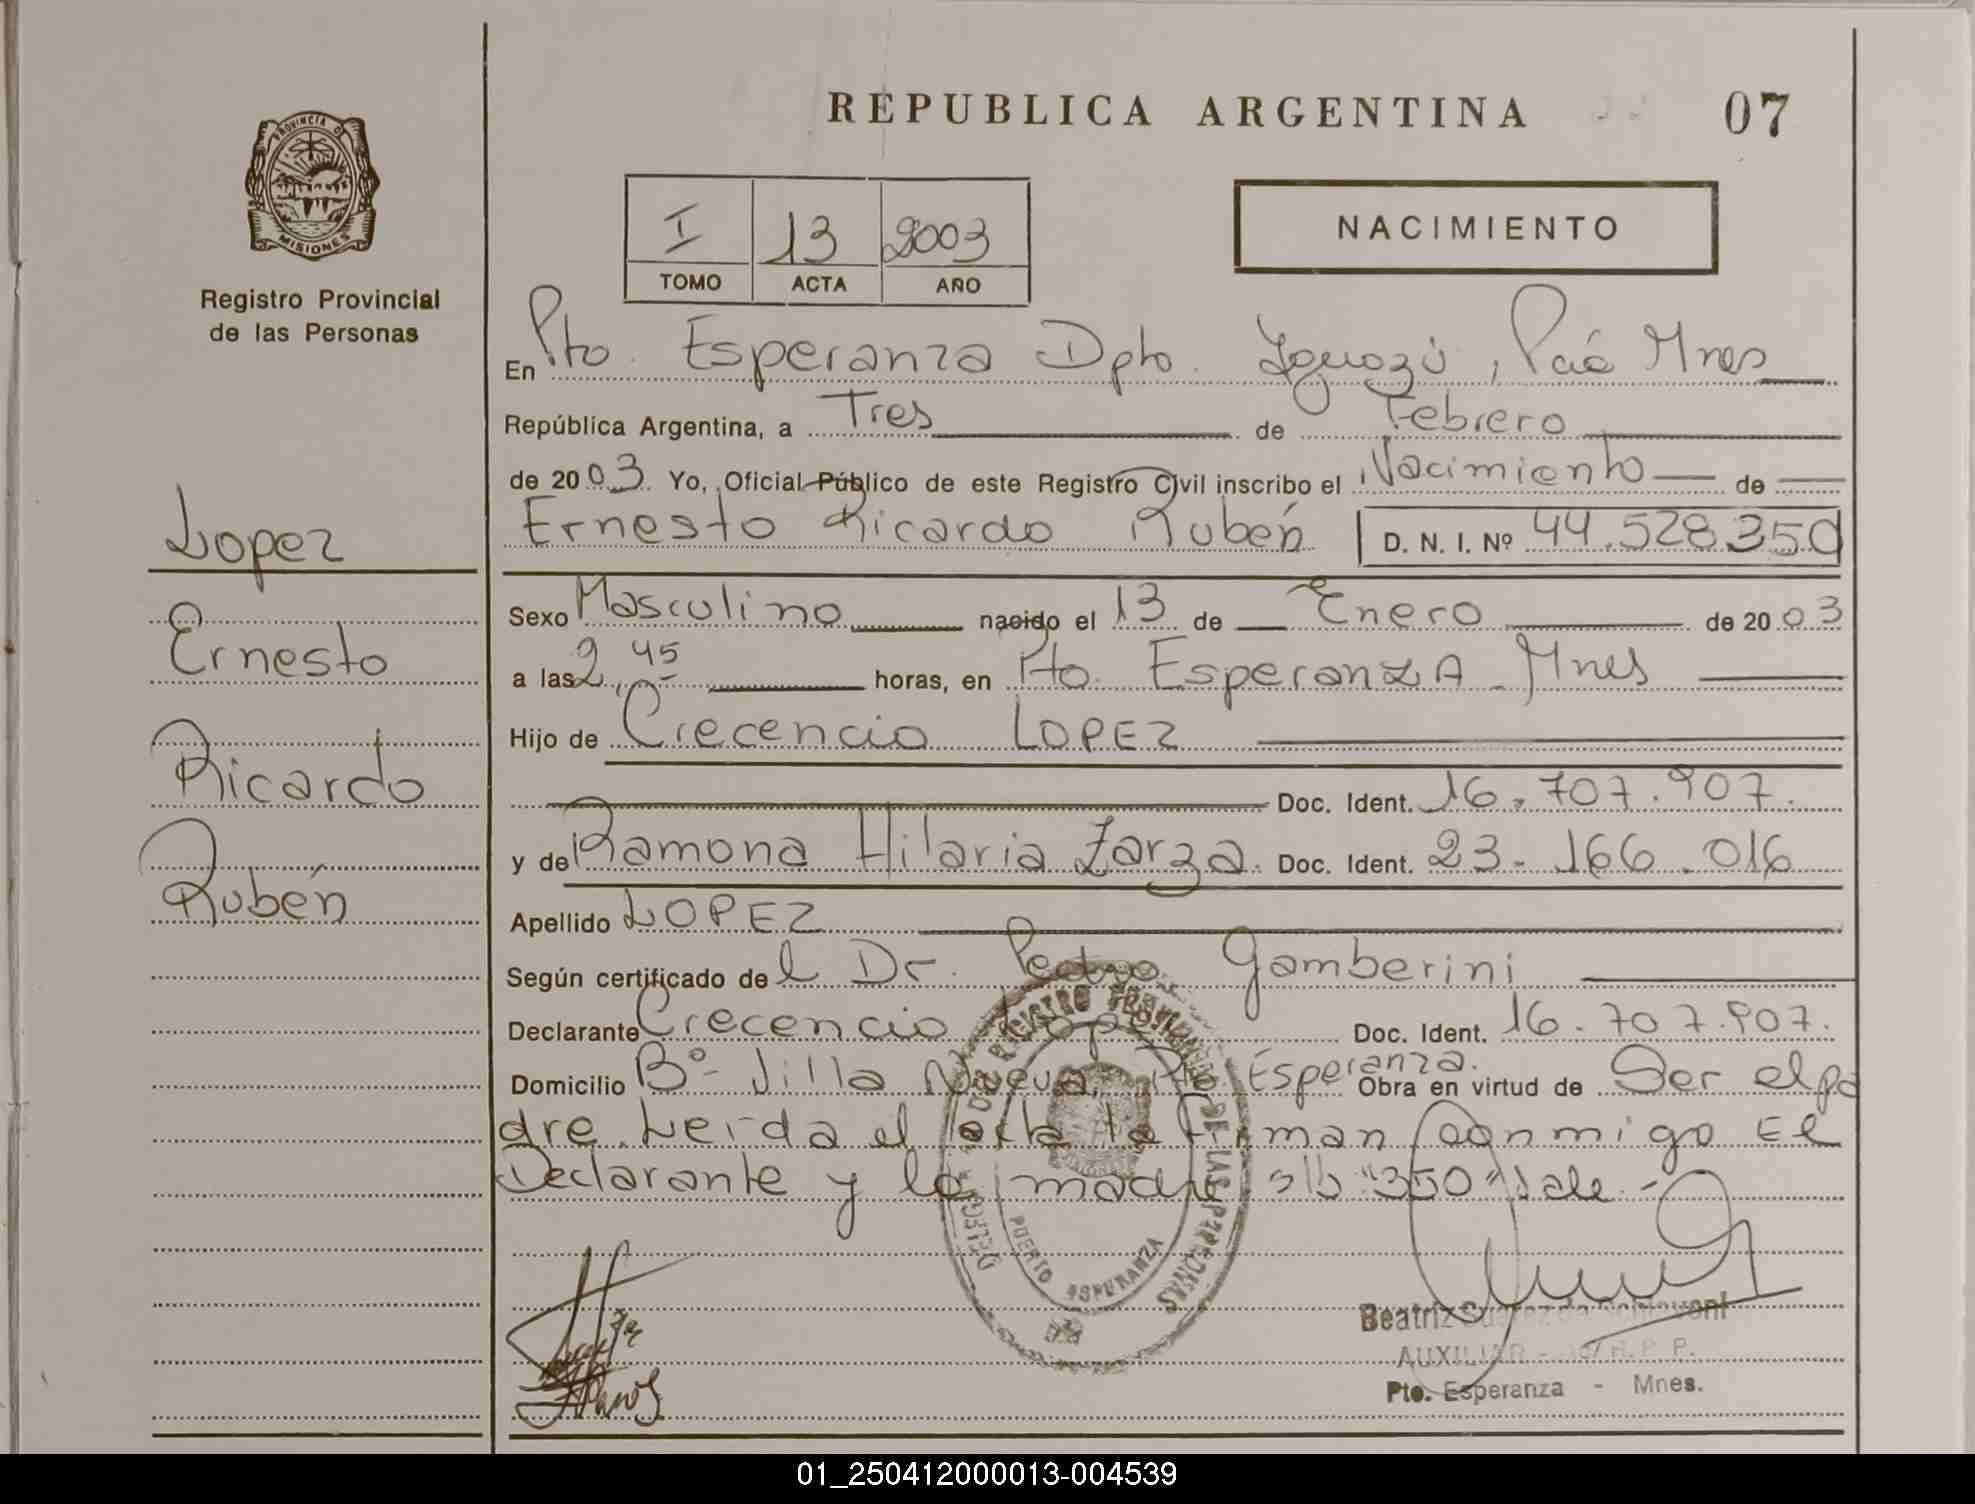 REPUBLICA ARGENTINA 07
PROVINCIA D
MISIONES
Registro Provincial
de las Personas
I 13 2003
TOMO ACTA AÑO
NACIMIENTO
En Pto. Esperanza Dpto. Iguazú, Pcia Mnes
República Argentina, a Tres de Febrero
de 2003 Yo, Oficial Público de este Registro Civil inscribo el Nacimiento de
Ernesto Ricardo Rubén D. N. I. Nº 44.528.350
Lopez
Ernesto
Ricardo
Rubén
Sexo Masculino nacido el 13 de Enero de 2003
a las 2,45 horas, en Pto. Esperanza - Mnes
Hijo de Crecencio LOPEZ
Doc. Ident. 16.707.907.
y de Ramona Hilaria Zarza. Doc. Ident. 23-166.016
Apellido LOPEZ
Según certificado del Dr. Pedro Gamberini
Declarante Crecencio Lopez Doc. Ident. 16.707.907.
Domicilio Bº- Villa Nueva, Pto Esperanza. Obra en virtud de Ser el pa
dre. Leida el acta la firman conmigo El
Declarante y la madre s/b "350" Vale.-
REGISTRO PROVINCIAL DE LAS PERSONAS
PUERTO ESPERANZA
Beatriz Suarez de Schiavoni
AUXILIAR - R. P. P.
Pto. Esperanza - Mnes.
01_250412000013-004539